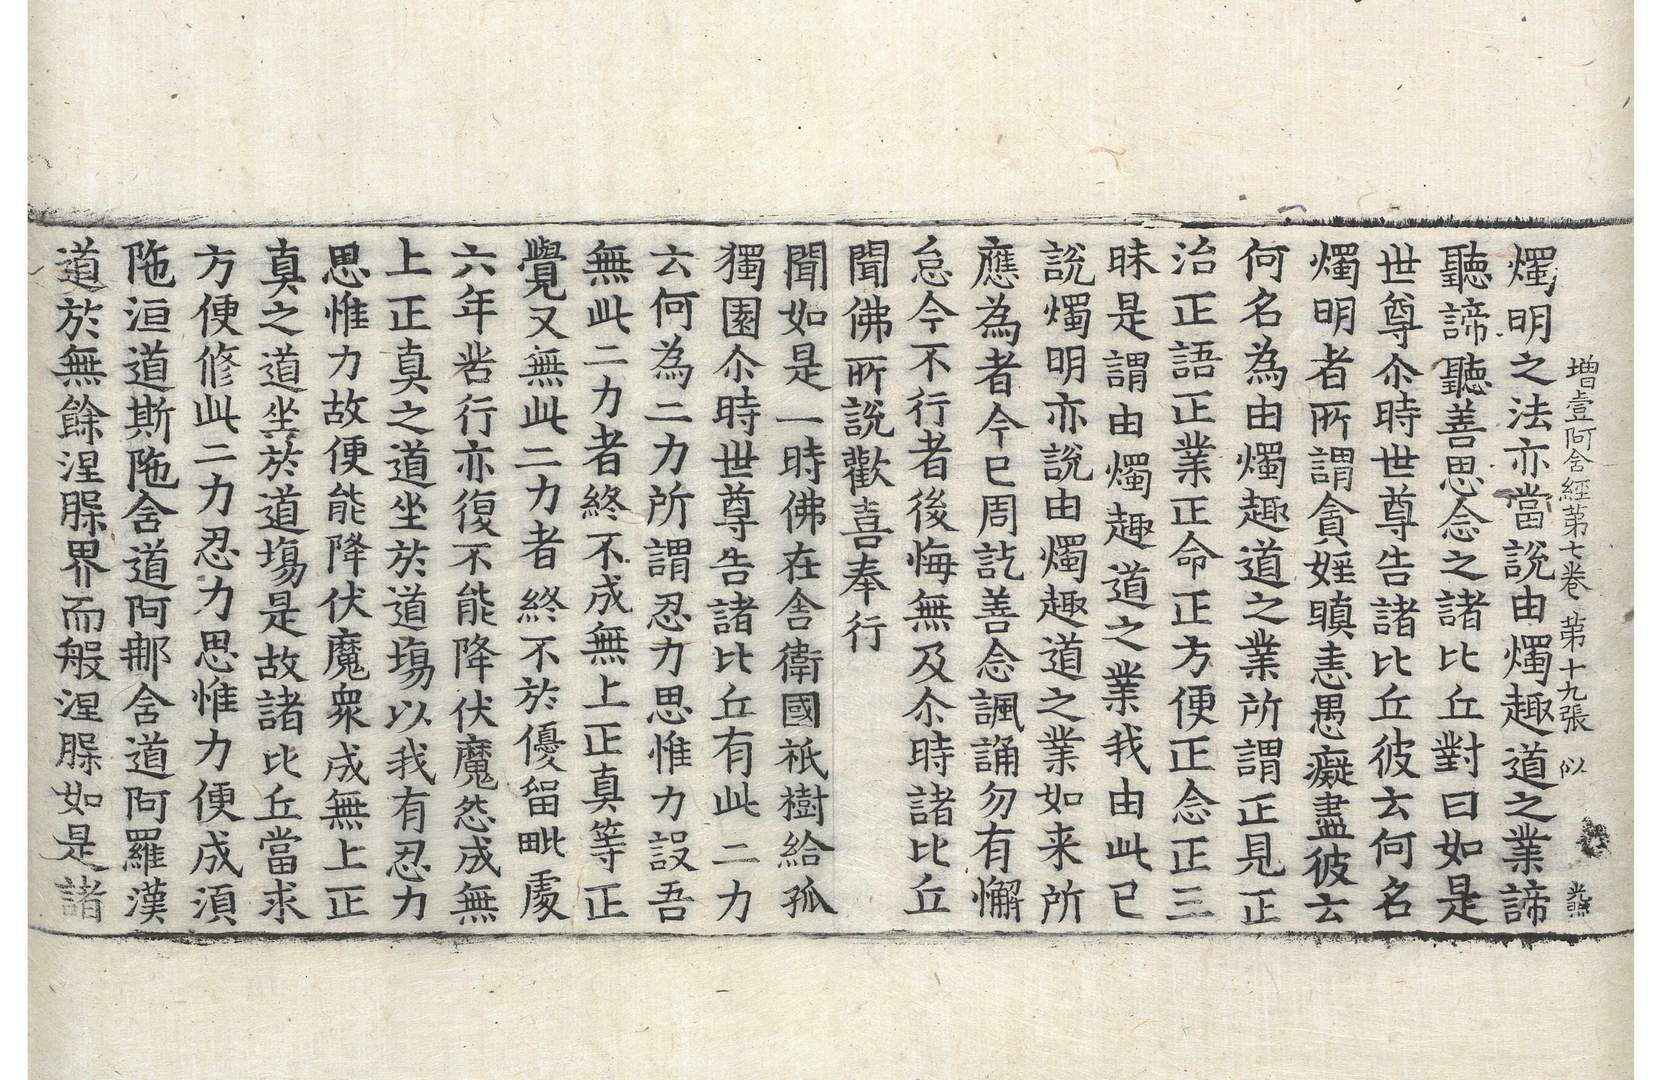 增壹阿含經第七卷 第十九張 似
燭明之法亦當說由燭趣道之業諦
聽諦聽善思念之諸比丘對曰如是
世尊尒時世尊告諸比丘彼云何名
燭明者所謂貪婬瞋恚愚癡盡彼云
何名為由燭趣道之業所謂正見正
治正語正業正命正方便正念正三
昧是謂由燭趣道之業我由此已
說燭明亦說由燭趣道之業如来所
應為者今已周訖善念諷誦勿有懈
怠今不行者後悔無及尒時諸比丘
聞佛所說歡喜奉行
聞如是一時佛在舍衛國祇樹給孤
獨園尒時世尊告諸比丘有此二力
云何為二力所謂忍力思惟力設吾
無此二力者終不成無上正真等正
覺又無此二力者終不於優留毗處
六年苦行亦復不能降伏魔怨成無
上正真之道坐於道場以我有忍力
思惟力故便能降伏魔衆成無上正
真之道坐於道場是故諸比丘當求
方便修此二力忍力思惟力便成湏
陁洹道斯陁含道阿那含道阿羅漢
道於無餘涅槃界而般涅槃如是諸